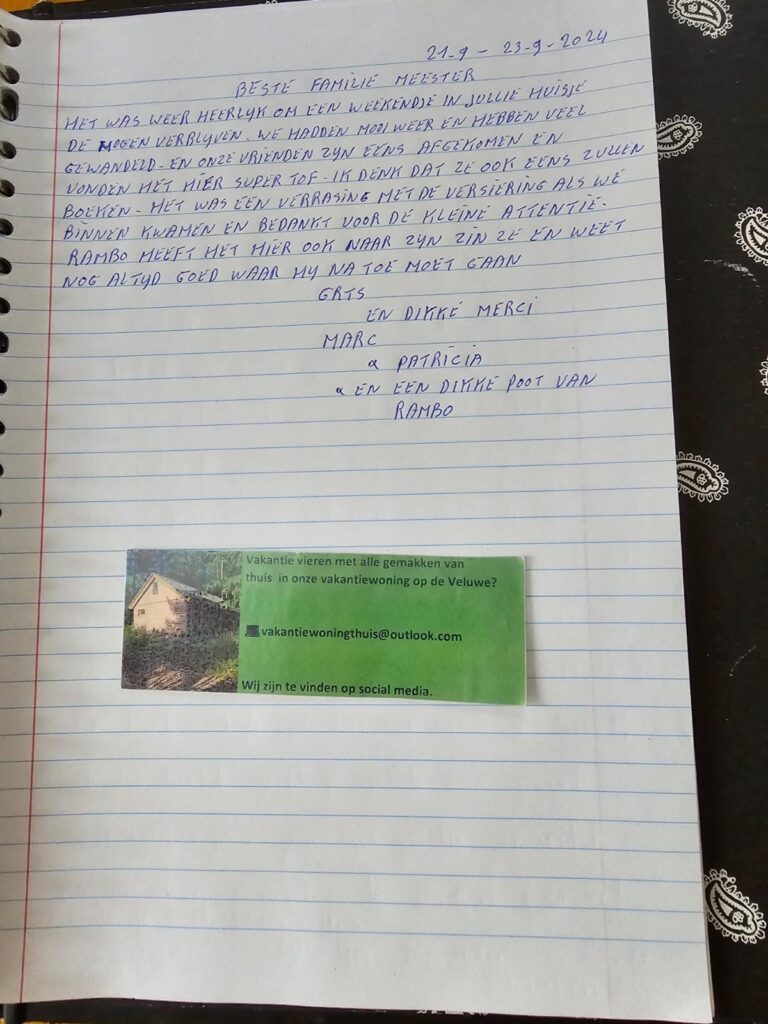 21-9 - 23-9-2024
BESTE FAMILIE MEESTER
HET WAS WEER HEERLYK OM EEN WEEKENDJE IN JULLIE HUISJE
DE MOGEN VERBLIJVEN. WE HADDEN MOOI WEER EN HEBBEN VEEL
GEWANDELD. EN ONZE VRIENDEN ZYN EENS AFGEKOMEN EN
VONDEN HET HIER SUPER TOF. IK DENK DAT ZE OOK EENS ZULLEN
BOEKEN. HET WAS EEN VERRASING MET DE VERSIERING ALS WE
BINNEN KWAMEN EN BEDANKT VOOR DE KLEINE ATTENTIE.
RAMBO HEEFT HET HIER OOK NAAR ZYN ZIN ZE EN WEET
NOG ALTYD GOED WAAR HY NA TOE MOET GAAN
GRTS
EN DIKKE MERCI
MARC
& PATRICIA
& EN EEN DIKKE POOT VAN
RAMBO
Vakantie vieren met alle gemakken van
thuis in onze vakantiewoning op de Veluwe?
vakantiewoningthuis@outlook.com
Wij zijn te vinden op social media.